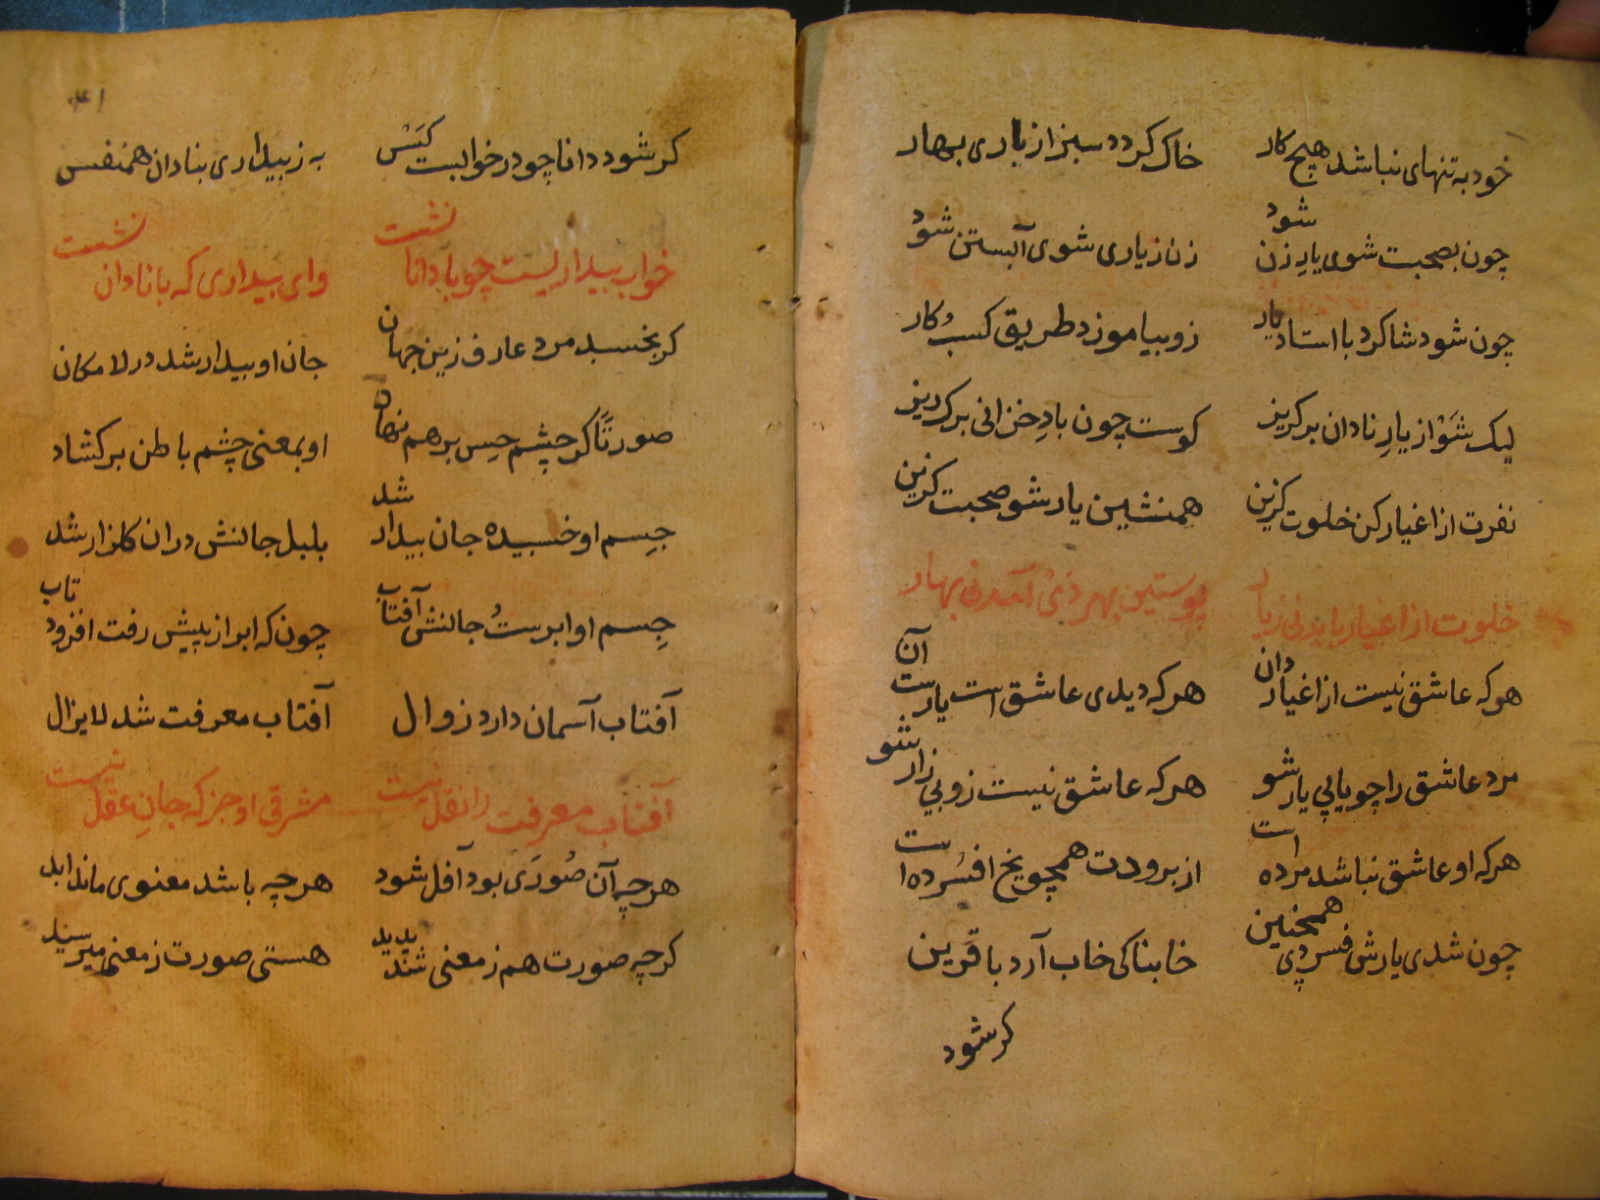 خود به تنهای نباشد هیچ کار خاک کردد سبز از باری بهار
چون بصحبت شوی یارِ زن شود زن زیاری شوی آبستن شود
چون شود شاکرد با استاد یار زو بیاموزد طریق کسب کار
لیک شَوْ از یارِ نادان بر کریز کوست چون بادِ خزانی برک ریز
نفرت از اغیار کن خلوت کزین همنشین یار شو صحبت کزین
خلوت از اغیار باید نی زیار پوستین بهر دَیْ آمد نی بهار
هر که عاشق نیست از اغیار دان هر که دیدی عاشق است یارست آن
مرد عاشق را چو یابی یار شو هر که عاشق نیست زو بیزار شو
هر که او عاشق نباشد مرده است از برودت همچو یخ افسُرده است
چون شدی یارش فسردی همچنین خابناکی خاب آرد با قَرین
کر شود
۴۱
کر شود دانا چو در خوابست کَسْ به ز بیداری بنادان همنفس
خواب بیداریست چو با دانا نشست وای بیداری که با نادان نشست
کر بخسبد مرد عارف زین جهان جان او بیدار شد در لامکان
صورتًا کر چشم حِس بر هم نهاد او بمعنی چشم باطن بر کشاد
جِسم او خسبیده جان بیدار شد بلبل جانش دران کلزار شد
جِسم او ابرستُ جانش آفتاب چون که ابر از پیش رفت افزود تاب
آفتاب آسمان دارد زوال آفتاب معرفت شد لایزال
آفتاب معرفت را نقل نیست مشرقی او جز که جانِ عقل نیست
هر چه آن صُورَی بود آفل شود هر چه باشد معنوی ماند ابد
کر چه صورت هم ز معنی شد پدید هستی صورت ز معنی میرسید